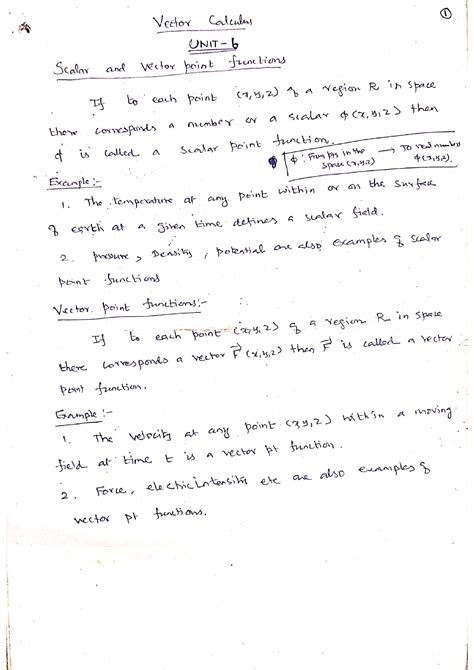 Vector Calculus
①
UNIT-6
Scalar and Vector point functions
If to each point (x,y,z) of a region R in space
there corresponds a number or a scalar φ(x,y,z) then
φ is called a scalar point function.
φ: From pts in the space (x,y,z) → To real number φ(x,y,z)
Example:-
1. The temperature at any point within or on the surface
of earth at a given time defines a scalar field.
2. pressure, Density, potential are also examples of scalar
point functions
Vector point functions:-
If to each point (x,y,z) of a region R in space
there corresponds a vector F⃗(x,y,z) then F⃗ is called a vector
point function.
Example:-
1. The velocity at any point (x,y,z) within a moving
field at time t is a vector pt function.
2. Force, electric intensity etc are also examples of
vector pt functions.